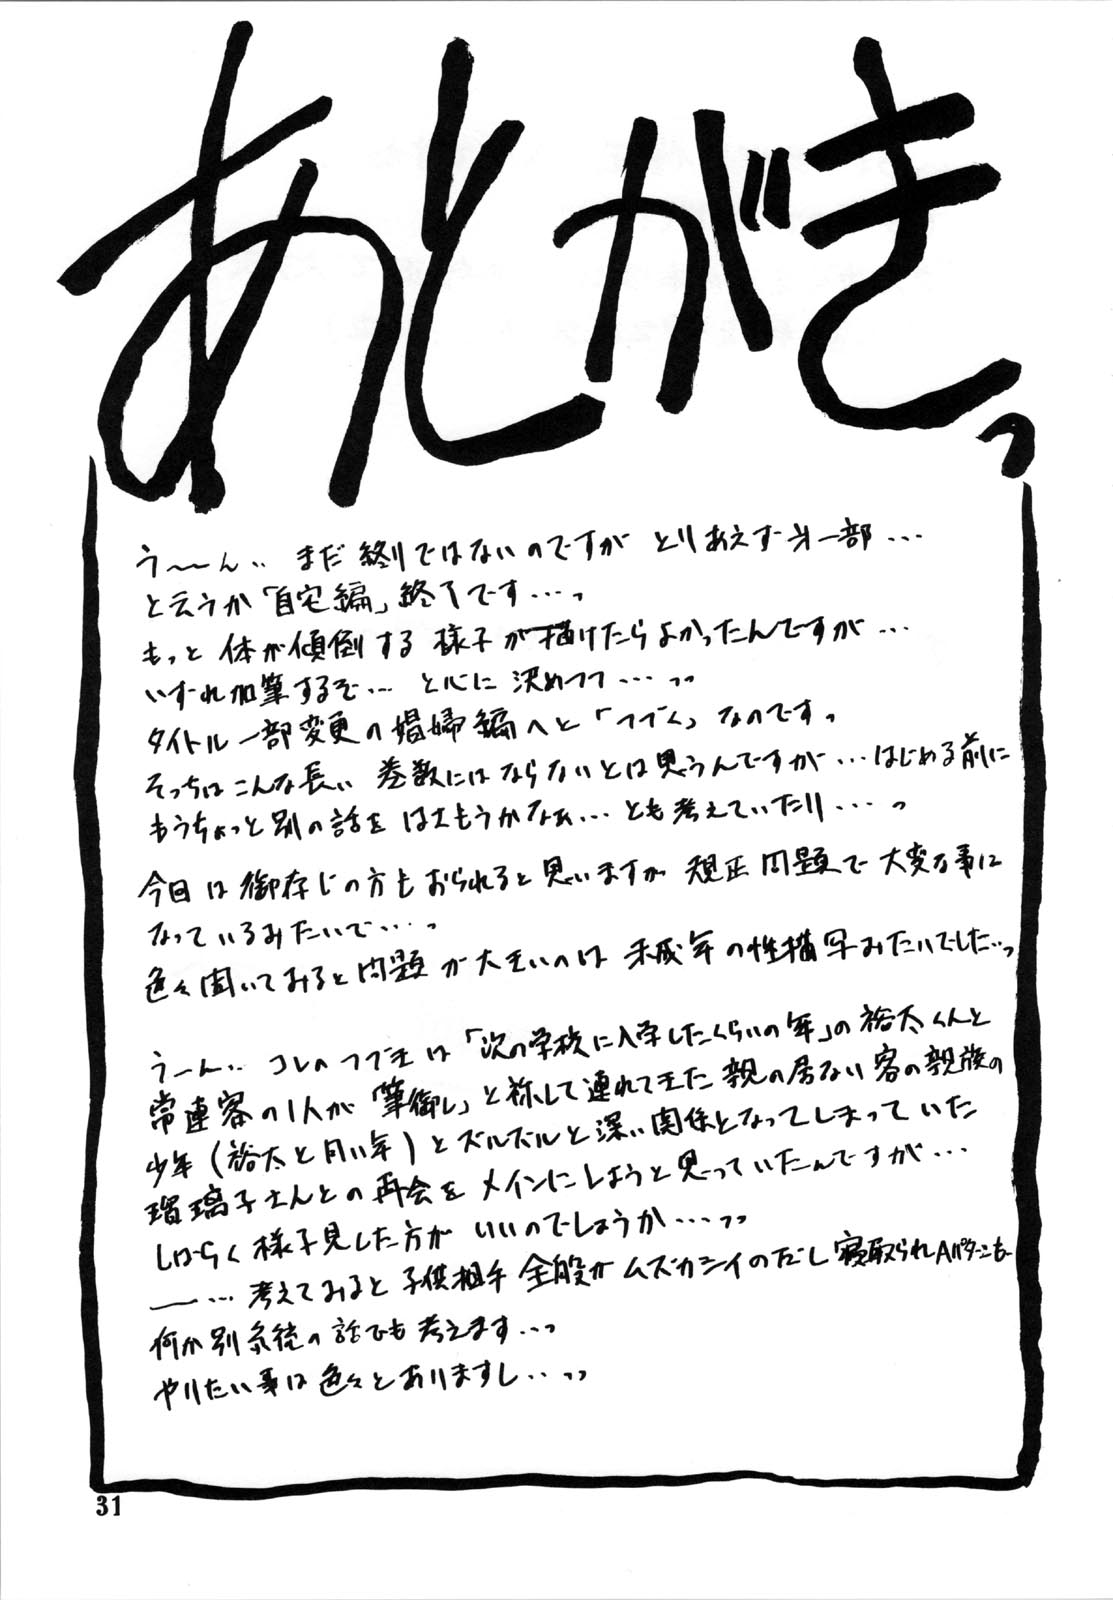 あとがきっ
う〜〜ん‥ まだ終りではないのですが とりあえず才一部…
と云うか「自宅編」終了です…っ
もっと 体が傾倒する 様子が描けたらよかったんですが…
いずれ加筆するぞ… と心に 決めつつ…っっ
タイトル一部変更の娼婦編へと「つづく」なのです。
そっちはこんな長い 巻数にはならないとは思うんですが…はじめる前に
もうちょっと別の話を はさもうかなぁ…とも考えていたり…っ
今回は御存じの方もおられると思いますが 規正問題で大変な事に
なっているみたいで…っ
色々聞いてみると問題が大きいのは 未成年の性描写みたいでした‥っ
うーん‥ コレのつづきは「次の学校に入学したくらいの年」の裕太くんと
常連客の1人が「筆御し」と称して連れてきた 親の居ない客の親族の
少年(裕太と同い年)とズルズルと深い関係となってしまっていた
瑠璃子さんとの再会を メインにしようと思っていたんですが…
しばらく様子見した方が いいのでしょうか…っっ
ー… 考えてみると 子供相手 全般がムズカシイのだし 寝取られAパターンも
何か別系統の話でも考えます…っ
やりたい事は色々とありますし‥っっ
31